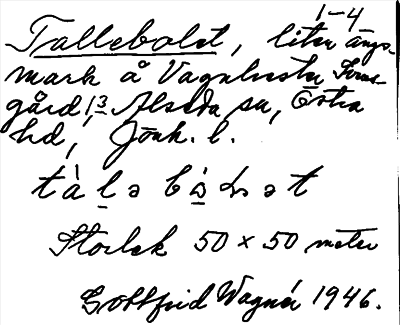 1-4
Tallebolet, liten ängs-
mark å Vagnhester
gård 1:3 Alseda sn, Östra
hd, Jönk. l.
tàlə bὼlət
Storlek 50 x 50 meter
Gottfrid Wagnér 1946.